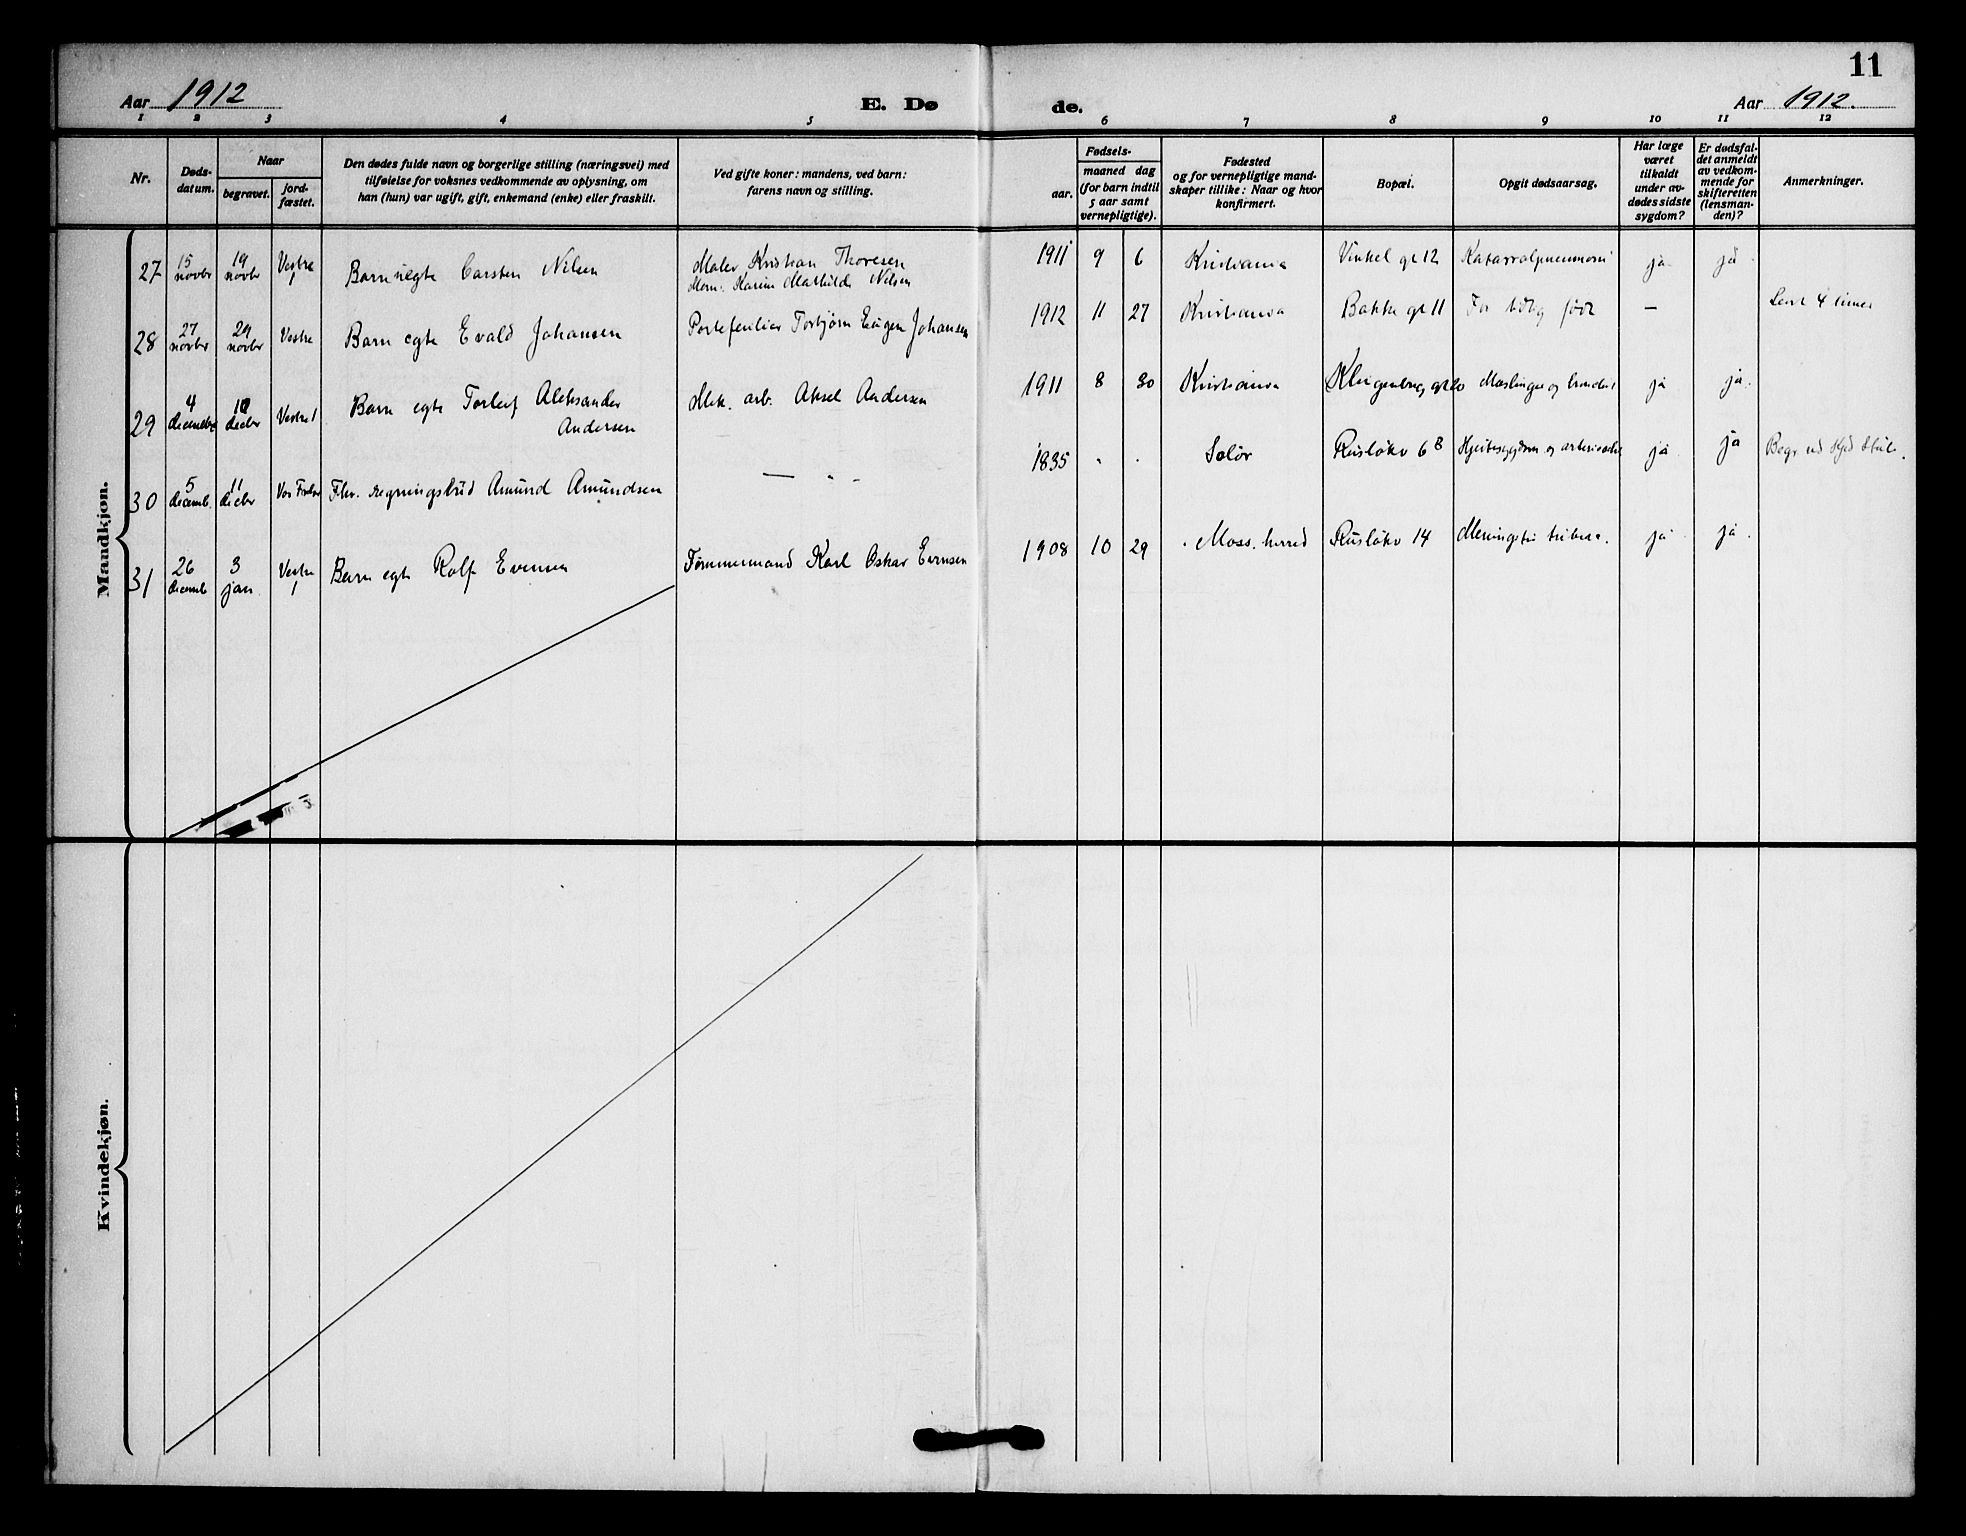 11
Aar 1912
E. Dø
de.
Aar 1912.
1 2 3 4 5 6 7 8 9 10 11 12
Nr.
Døds-
datum.
Naar
begravet.
jord-
fæstet.
Den dødes fulde navn og borgerlige stilling (næringsvei) med
tilføielse for voksnes vedkommende av oplysning, om
han (hun) var ugift, gift, enkemand (enke) eller fraskilt.
Ved gifte koner: mandens, ved barn:
farens navn og stilling.
Fødsels-
aar.
maaned dag
(for barn indtil
5 aar samt
vernepligtige).
Fødested
og for vernepligtige mand-
skaper tillike: Naar og hvor
konfirmert.
Bopæl.
Opgit dødsaarsag.
Har læge
været
tilkaldt
under av-
dødes sidste
sygdom?
Er dødsfal-
det anmeldt
av vedkom-
mende for
skifteretten
(lensman-
den)?
Anmerkninger.
Mandkjøn.
27 15 novbr 19 novbr Vestre Barn uegte Carsten Nilsen Maler Kristian Thoresen 1911 9 6 Kristiania Vinkel gt 12 Katarralpneumoni ja ja
Mor: Karine Mathilde Nilsen
28 27 novbr 29 novbr Vestre Barn egte Evald Johansen Portefeuillier Torbjørn Eugen Johansen 1912 11 27 Kristiania Bakke gt 11 For tidlig født — Levt 4 timer
29 4 decembr 10 decbr Vestre 1 Barn egte Torleif Aleksander Mek. arb. Aksel Andersen 1911 8 30 Kristiania Klingenberg gt Meslinger og ja ja.
Andersen
30 5 decemb. 11 decbr Vor Frelser Fhv. regningsbud Amund Amundsen — " - 1835 . . Solør Ruseløkv 68 Hjertesygdom og ja ja Begr ved
31 26 decemb 3 jan. Vestre 1 Barn egte Rolf Evensen Tømmermand Karl Oskar Evensen 1908 10 29 Moss. herred Ruseløkv 14 Meningitis tuberc. ja ja.
Kvindekjøn.